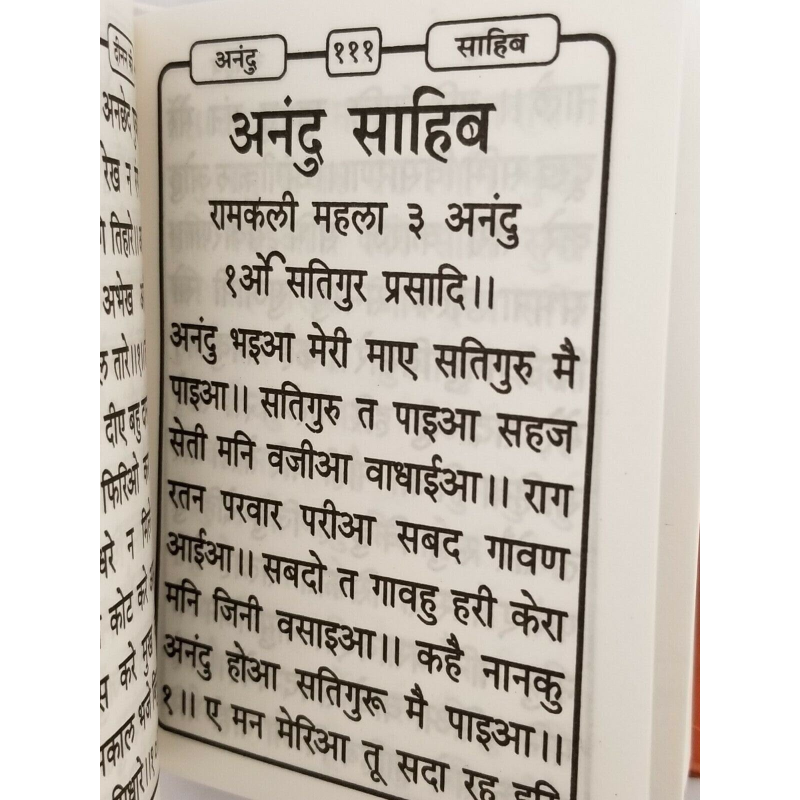 अनंदु १११ साहिब
अनंदु साहिब
रामकली महला ३ अनंदु
१ओ सतिगुर प्रसादि।।
अनंदु भइआ मेरी माए सतिगुरु मै
पाइआ।। सतिगुरु त पाइआ सहज
सेती मनि वजीआ वाधाईआ।। राग
रतन परवार परीआ सबद गावण
आईआ।। सबदो त गावहु हरी केरा
मनि जिनी वसाइआ।। कहै नानकु
अनंदु होआ सतिगुरू मै पाइआ।।
१।। ए मन मेरिआ तू सदा रहु हरि
अनछेद
रेख न
तिहारे।।
अभेख
तारे।।१।।
दीए बहु
फिरिओ
धरे न
कोट करे
करे मुख
भजे